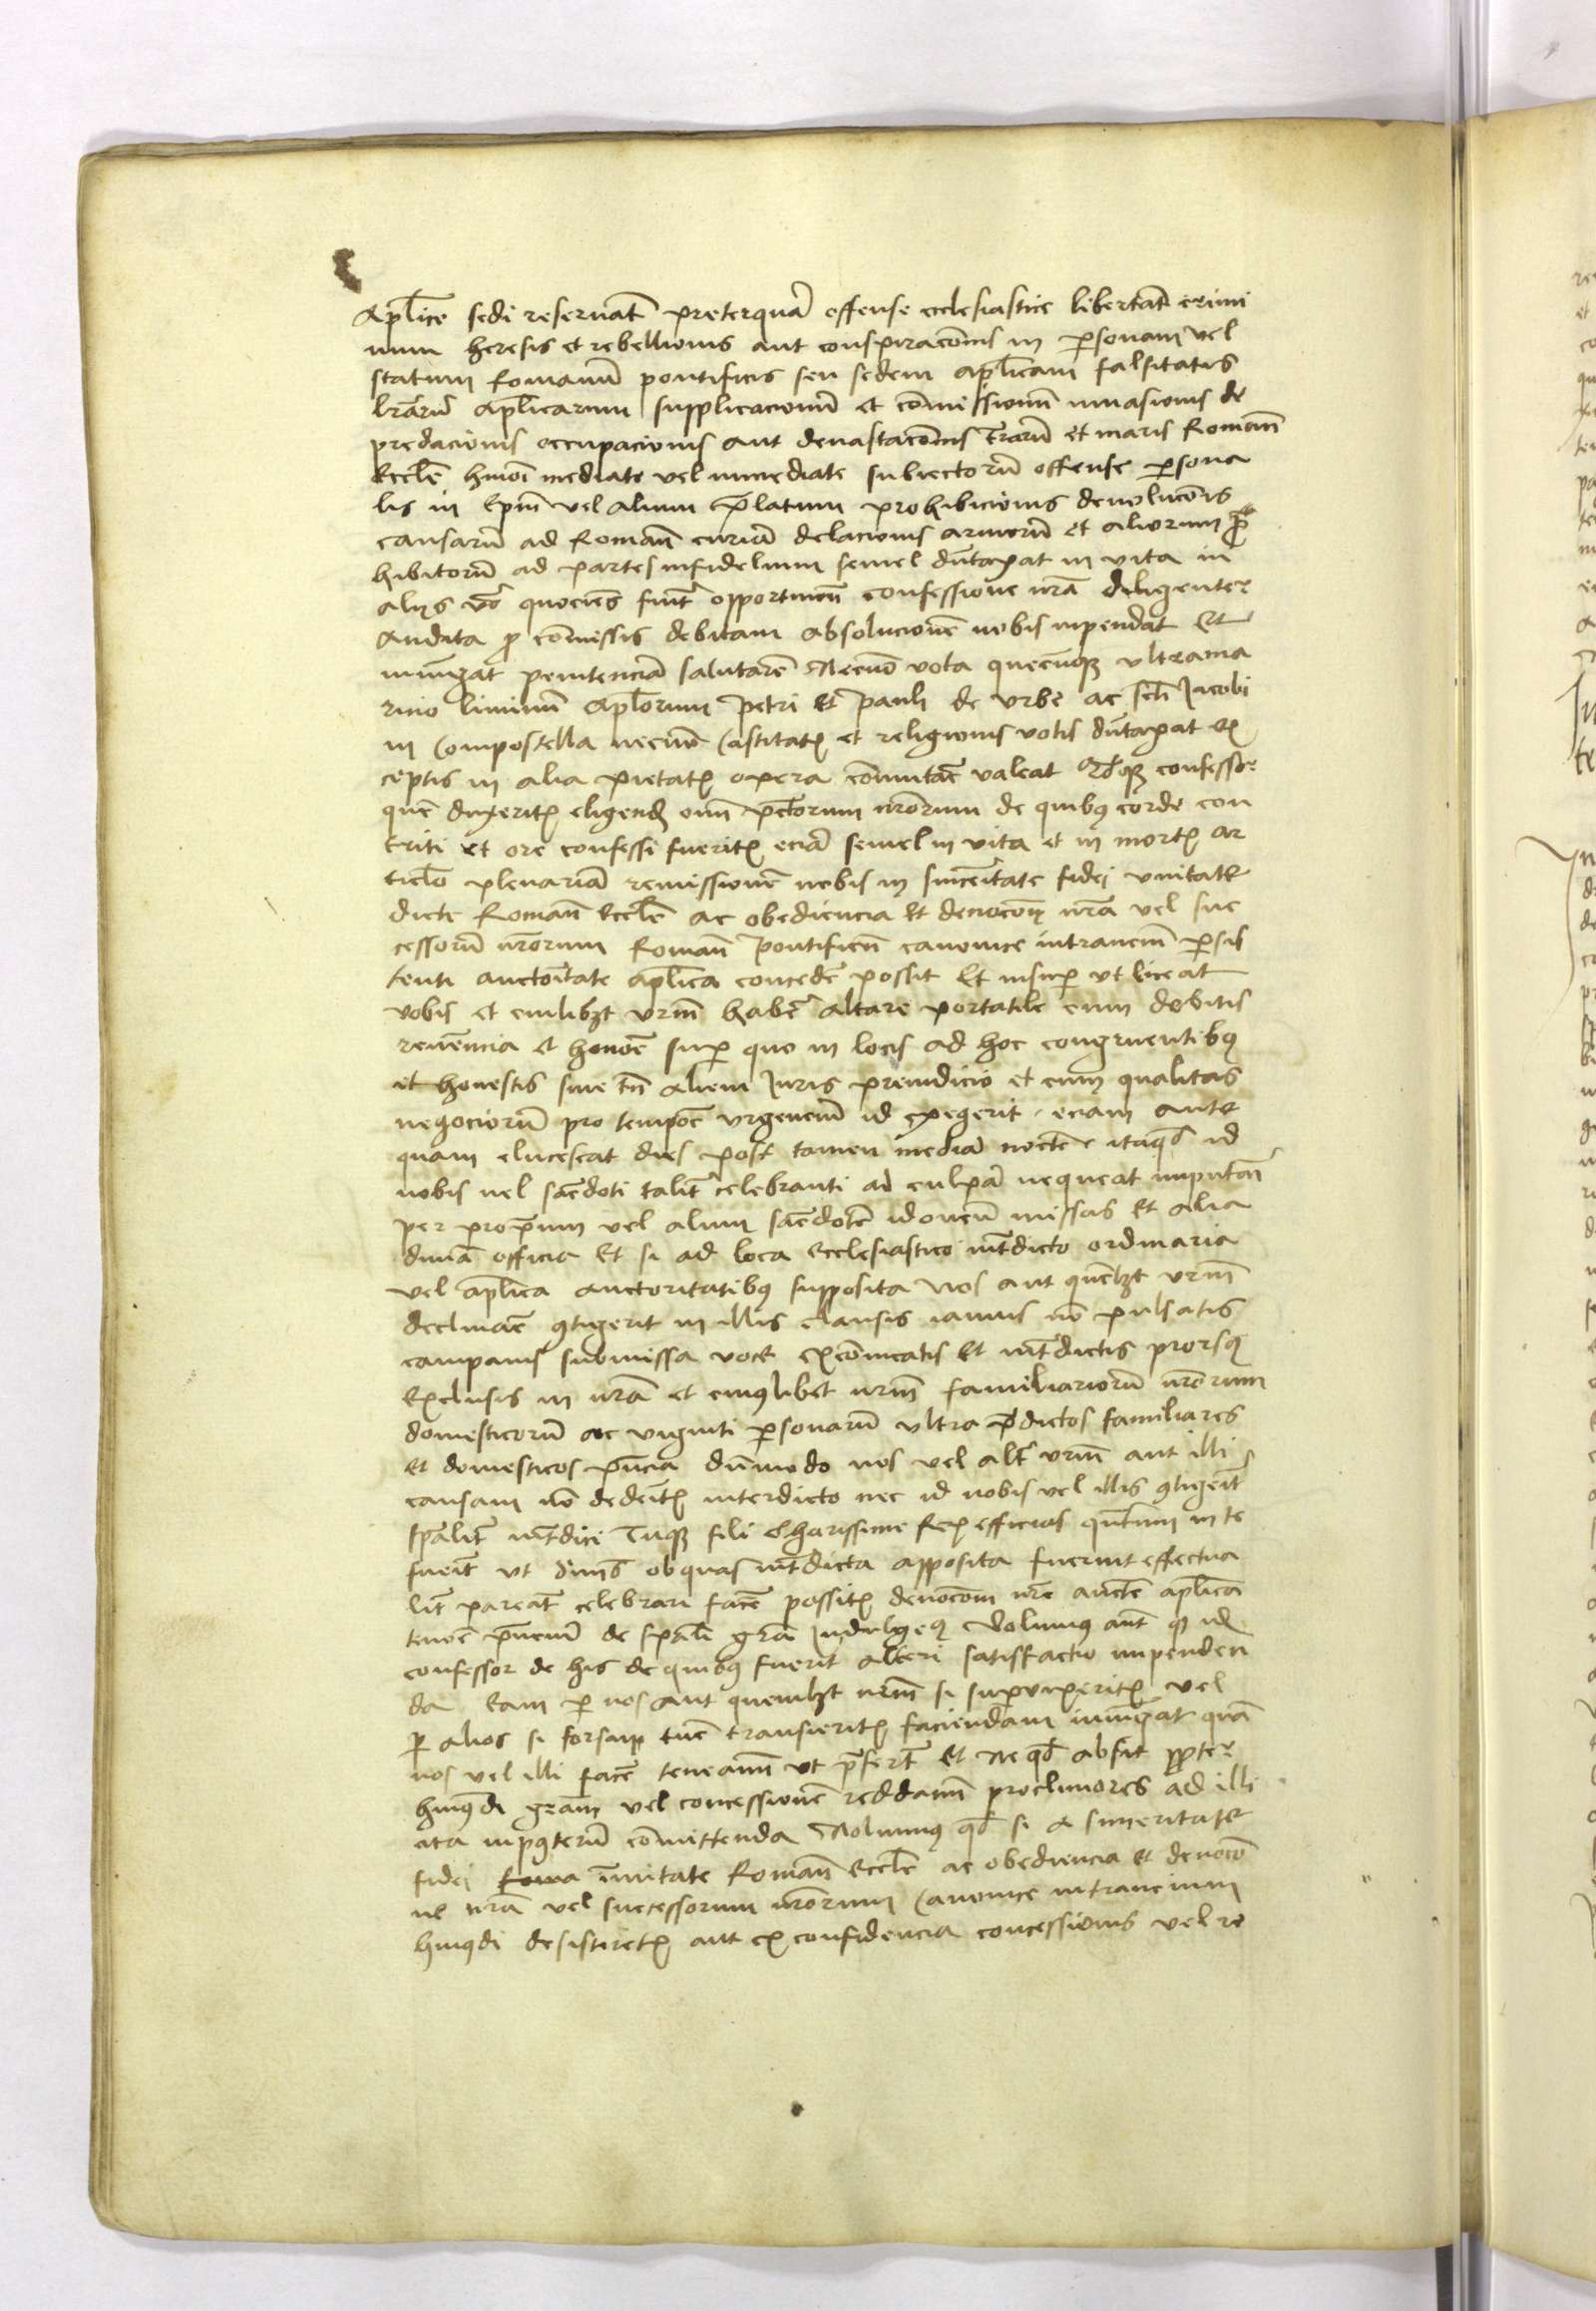 Aplice sedi reseruat preterqua offense ecclesiastice libertat crimi
num heresis et rebellionis aut conspiraconis in personam vel
statum Romanu pontificis seu sedem aplicam falsitatis
lraru aplicarum supplicacionu et comissionu inuasionis de
predacionis occupacionis aut deuastaconis terraru et maris Roman
Eccle hmoi mediate vel inmediate subiectoru offense persona
lis in Epm vel alium prelatum prohibicionis deuoluconis
causaru ad Roman curia delacionis armoru et aliorum pro
hibitoru ad partes infidelium semel dutaxat in vita in
alijs vo quociens fuit opportunu confessione vra diligenter
audita p comissis debitam absolucione vobis inpendat Et
iniugat penitencia salutare Necno vota quecunq ultrama
rino liminu Aplorum Petri et Pauli de Vrbe ac sci Jacobi
in Compostella necno Castitatis et religionis votis dutaxat ex
ceptis in alia pietatis opera comutare valeat Quodq confessor
que duxeritis eligend omi pctorum vrorum de quibus corde con
triti et ore confessi fueritis ecia semel in vita et in mortis ar
ticlo plenaria remissione vobis in sinceritate fidei vnitate
dicte Roman Eccle ac obediencia et deuocoe nra vel suc
cessoru nrorum Roman Pontificu canonice intrancium persis
tenti auctoritate aplica concede possit Et insup ut liceat
vobis et cuilibet vrm habere altare portatile cum debitis
reuerencia et honore sup quo in locis ad hoc congruentibus
et honestis sine tn alieni Juris preiudicio et cum qualitas
negocioru pro tempore vrgenciu id exegerit eciam ante
quam elucescat dies post tamen media nocte itaqd id
vobis uel sacdoti talit celebranti ad culpa nequeat imputari
per proprium vel alium sacdote idoneu missas et alia
diuina officia Et si ad loca Ecclesiastico intdicto ordinaria
vel aplica auctoritatibus supposita vos aut quelibet vrm
declinare contigerit in illis clausis ianuis no pulsatis
campanis submissa voce excomicatis et intdictis prorsus
exclusis in vra et cuiuslibet vrm familiarioru vrorum
domesticoru ac viginti personaru vltra predictos familiares
et domesticos pncia dumodo vos vel alt vrm aut illi
causam no dederitis interdicto nec id vobis vel illis contigerit
spalit intdici Tuq fili Charissime Rex efficias quntum in te
fuerit ut oms ob quas intdicta apposita fuerint effectua
lit pareat celebrari facere possitis deuocom vre aucte aplica
tenore pnciu de spali gra Indulgeq Volumus aut q id
confessor de his de quibus fuerit alteri satisfactio impenden
da eam p vos aut quemlibet vrm si supuixeritis vel
p alios si forsan tuc transieritis faciendam iniugat qua
vos vel illi facere teneamini ut prefert Et Ne qd absit propter
hmodi gram vel concessione reddamini procliuiores ad illi
cita inposteru comittenda Volumus qd si a sinceritate
fidei vnitate Roman Eccle ac obediencia et deuoco
ne nra vel successorum nrorum Canonice intrancium
hmodi desisteretis aut ex confidencia concessionis vel re